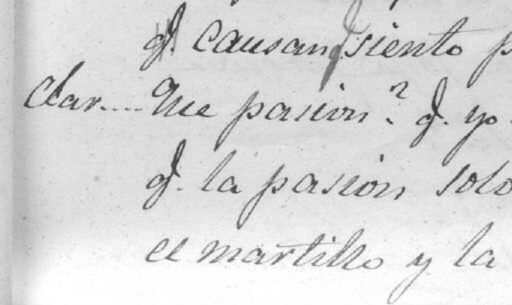 q. causan, siento p
Clar.... Que pasion? q. yo
q. la pasion solo
el martillo y la